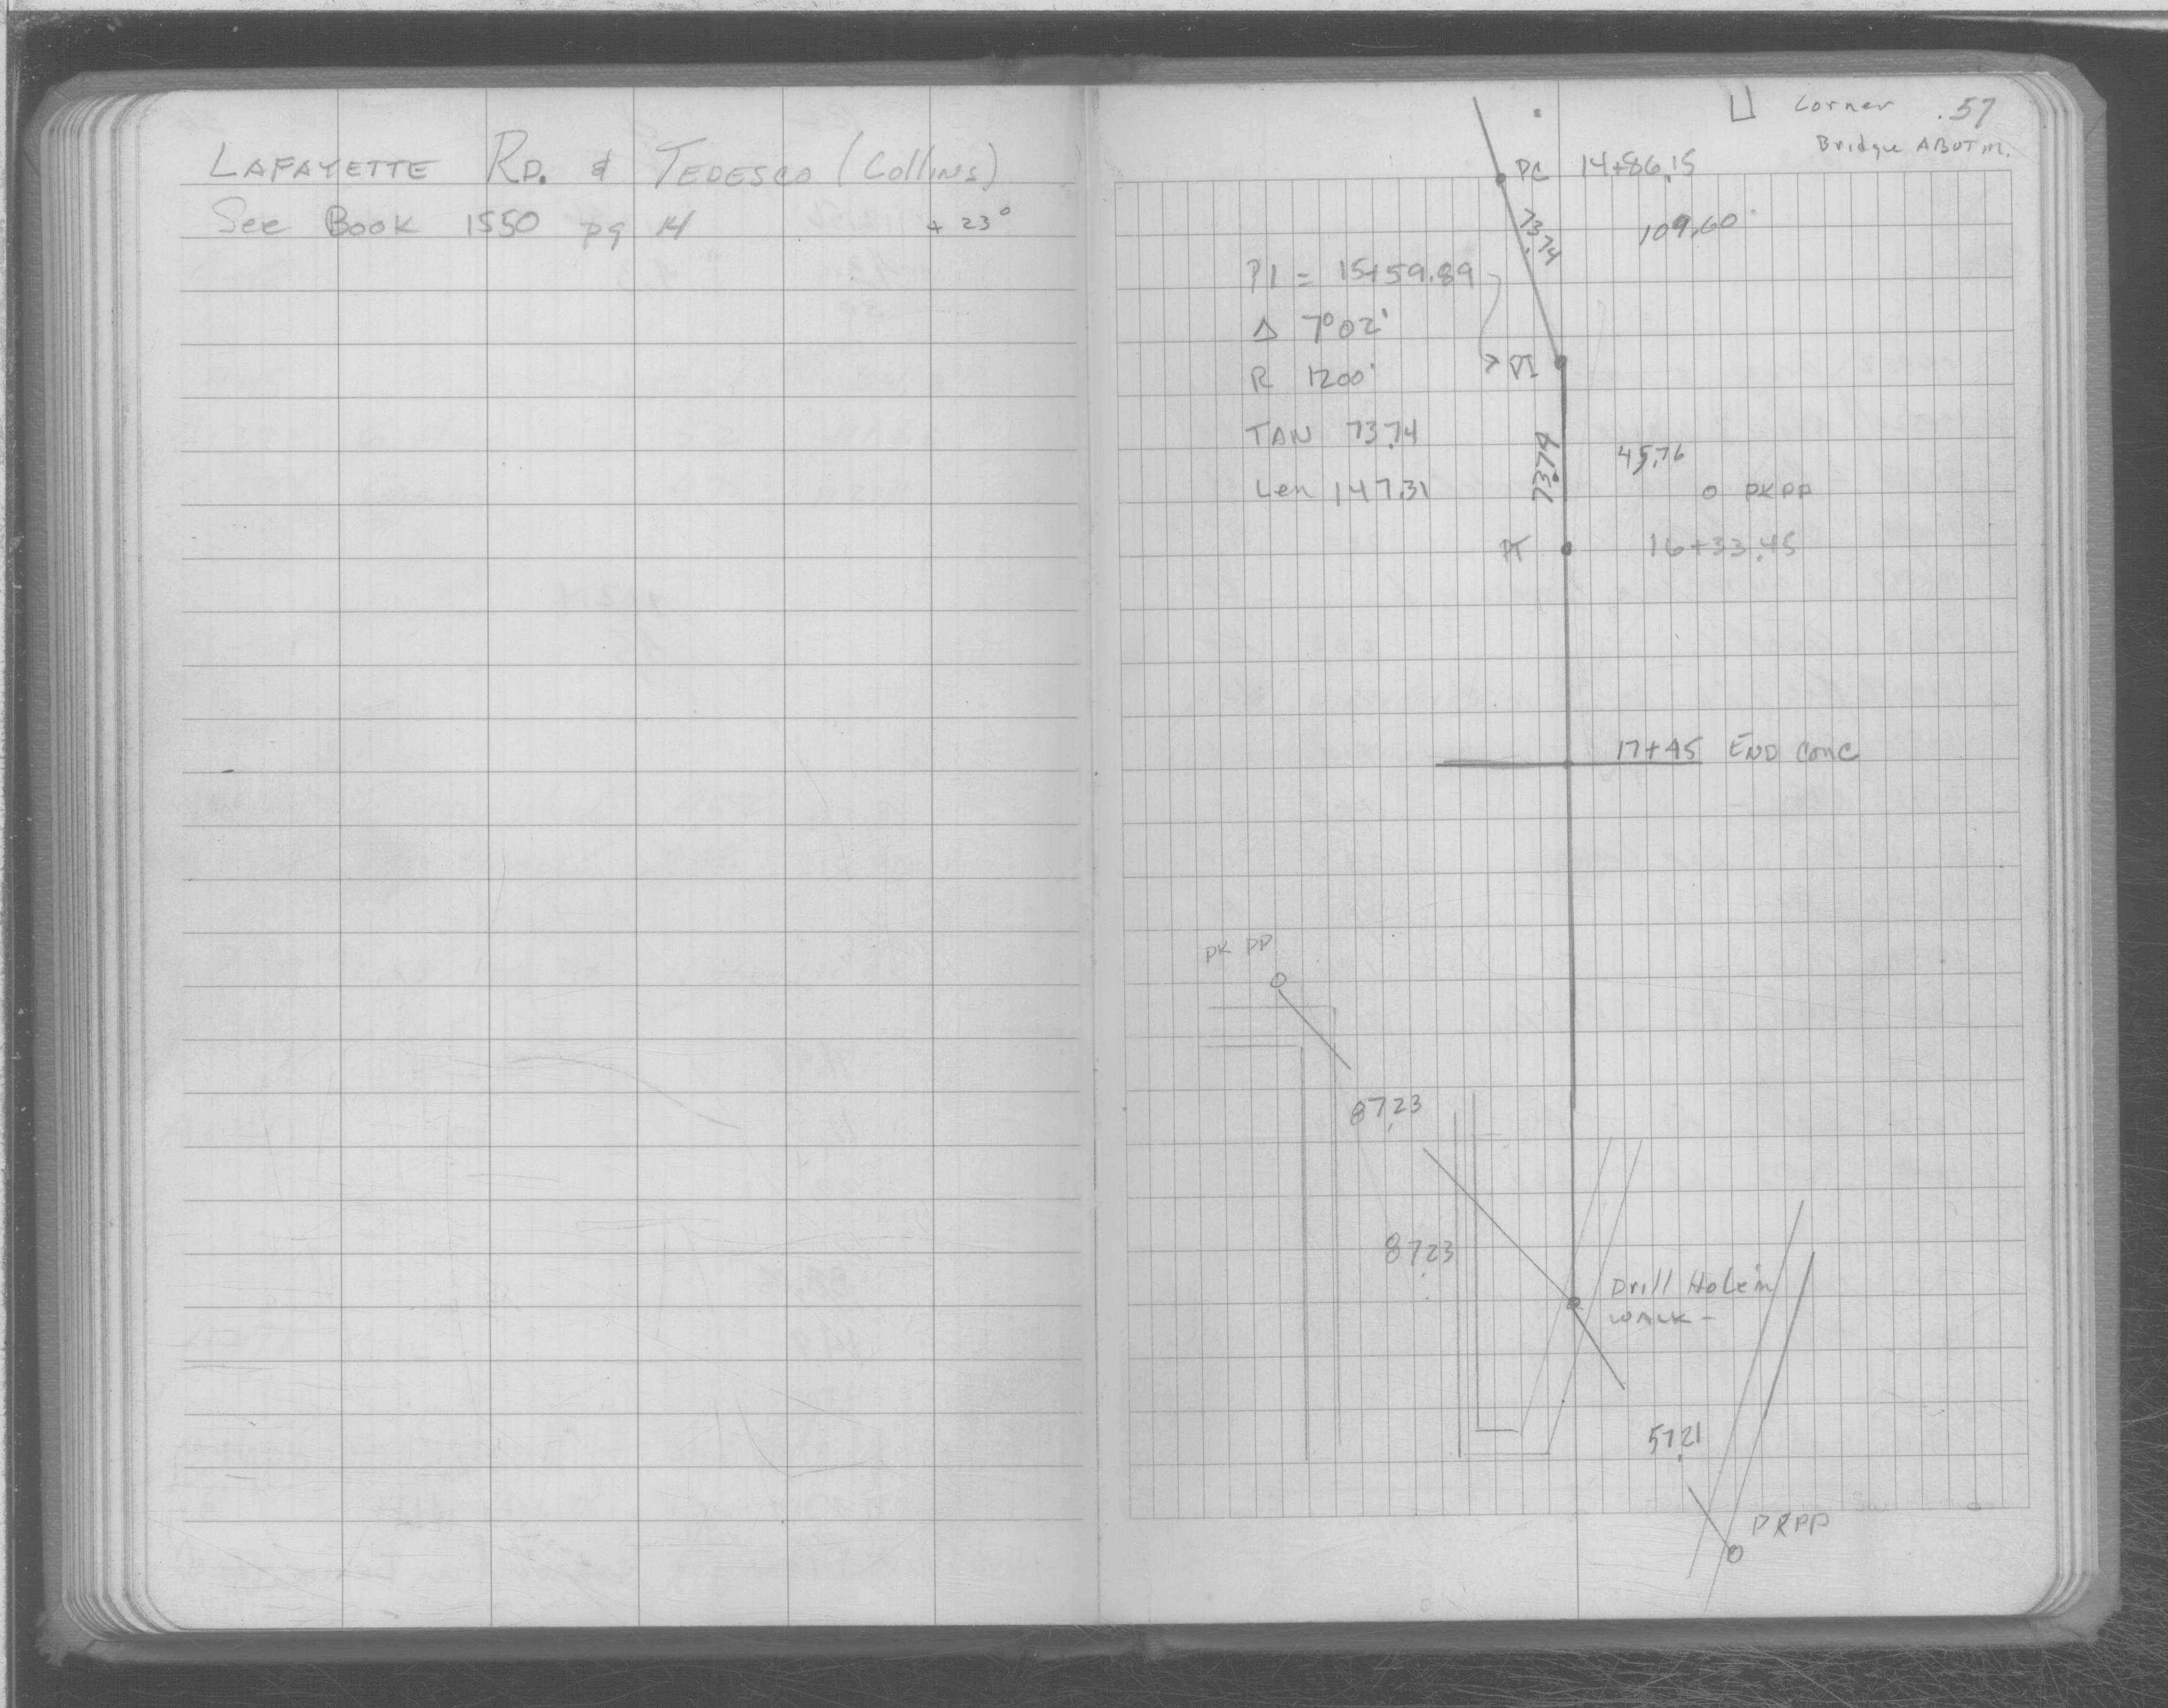 LAFAYETTE RD. & TEDESCO (Collins)
See Book 1550 pg 14
+ 23°
Corner .57
Bridge ABUTM.
PC 14+86.15
73.74
109.60
PI = 15+59.89
Δ 7°02'
R 1200'
PI
TAN 73.74
73.74
45.76
Len 147.31
PKPP
PT 16+33.45
17+45 END CONC
PK PP
87.23
87.23
Drill Hole in
WALK -
57.21
PKPP